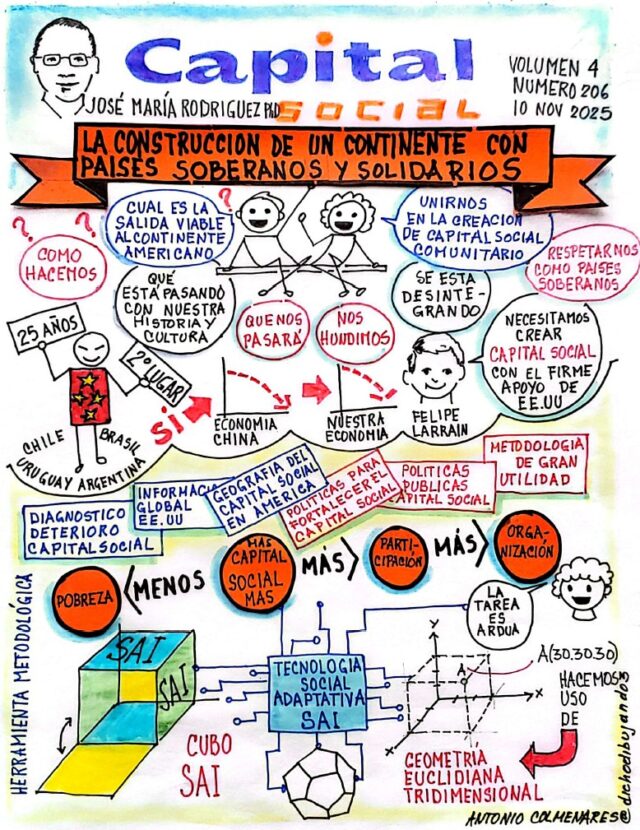 Capital
SOCIAL
JOSÉ MARÍA RODRIGUEZ PhD
VOLUMEN 4
NUMERO 206
10 NOV 2025
LA CONSTRUCCION DE UN CONTINENTE CON
PAISES SOBERANOS Y SOLIDARIOS
? ? ? ?
COMO
HACEMOS
CUAL ES LA
SALIDA VIABLE
AL CONTINENTE
AMERICANO
UNIRNOS
EN LA CREACION
DE CAPITAL SOCIAL
COMUNITARIO
RESPETARNOS
COMO PAISES
SOBERANOS
QUÉ
ESTA PASANDO
CON NUESTRA
HISTORIA Y
CULTURA
QUE NOS
PASARÁ
NOS
HUNDIMOS
SE ESTA
DESINTE-
GRANDO
NECESITAMOS
CREAR
CAPITAL SOCIAL
CON EL FIRME
APOYO DE
EE.UU
25 AÑOS
2º LUGAR
CHILE BRASIL
URUGUAY ARGENTINA
SI
ECONOMIA
CHINA
NUESTRA
ECONOMIA
FELIPE
LARRAIN
DIAGNOSTICO
DETERIORO
CAPITAL SOCIAL
INFORMACI
GLOBAL
EE.UU
GEOGRAFIA DEL
CAPITAL SOCIAL
EN AMERICA
POLITICAS PARA
FORTALECER EL
CAPITAL SOCIAL
POLITICAS
PUBLICAS
CAPITAL SOCIAL
METODOLOGIA
DE GRAN
UTILIDAD
POBREZA
<MENOS
MÁS
CAPITAL
SOCIAL
MAS
MÁS>
PARTI-
CIPACIÓN
MÁS>
ORGA-
NIZACIÓN
LA
TAREA
ES
ARDUA
HERRAMIENTA METODOLÓGICA
SAI
SAI
CUBO
SAI
TECNOLOGIA
SOCIAL
ADAPTATIVA
SAI
Y
A
X
X
A(30.30.30)
HACEMOS
USO
DE
GEOMETRÍA
EUCLIDIANA
TRIDIMENSIONAL
ANTONIO COLMENARES@dichodibujando3